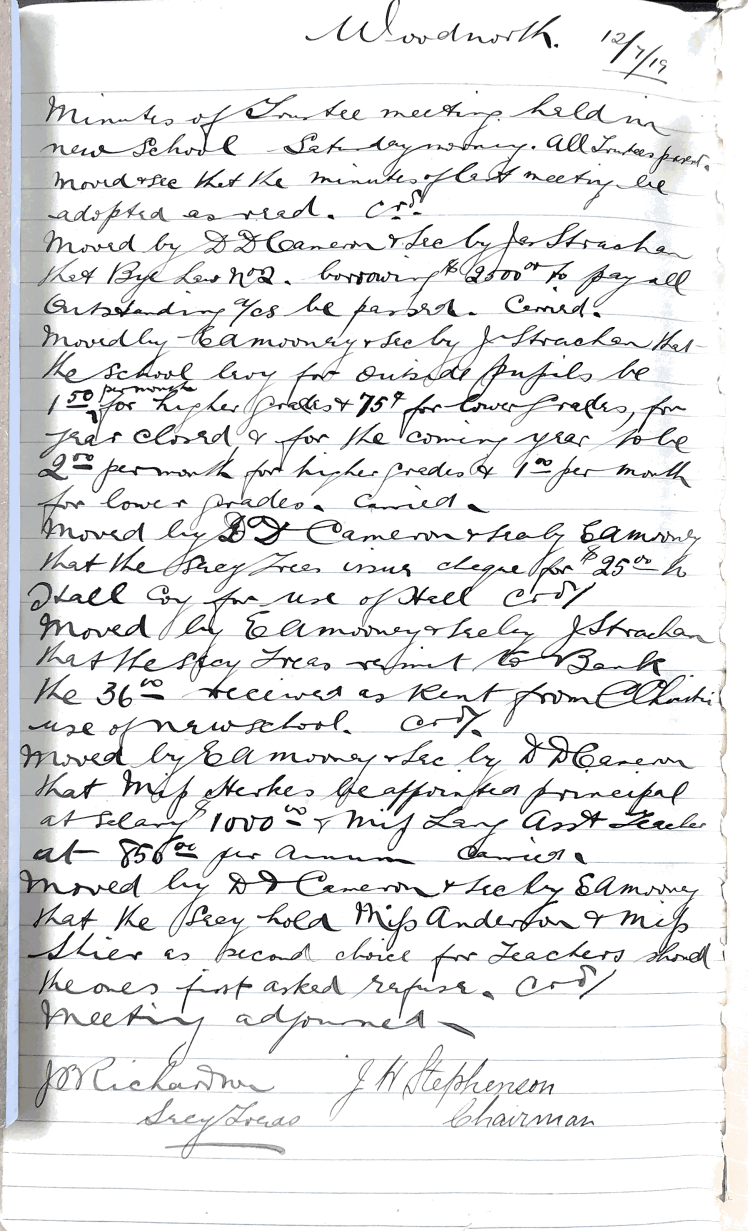 Woodnorth. 12/7/19
Minutes of Trustee meeting held in
new School Saturday morning. All Trustees present.
Moved & sec that the minutes of last meeting be
adopted as read. Crd.
Moved by D D Cameron & Sec by Jas Strachan
that Bye Law No 2. borrowing $2500.00 to pay all
Outstanding a/cs be passed. Carried.
Moved by E A Mooney & sec by J Strachan that
the school levy for outside pupils be
1.50 per month for higher grades & 75¢ for lower grades, for
year closed & for the coming year to be
2.00 per month for higher grades & 1.00 per month
for lower grades. Carried.
Moved by D D Cameron & Sec by E A Mooney
that the Secy Treas issue cheque for $25.00 to
Hall Coy for use of Hall Crd/
Moved by E A Mooney & Sec by J Strachan
that the Secy Treas remit to Bank
the 36.00 received as Rent from C Christie
use of new school. Crd/.
Moved by E A Mooney & Sec by D D Cameron
that Miss Herkes be appointed principal
at Salary $1000.00 & Miss Lang Asst Teacher
at 850.00 per Annum Carried.
Moved by D D Cameron & Sec by E A Mooney
that the Secy hold Miss Anderson & Miss
Shier as second choice for Teachers should
the ones first asked refuse. Crd/
Meeting adjourned
J Richardson J H Stephenson
Secy Treas Chairman